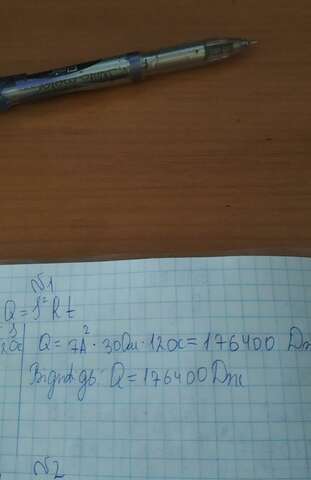 №1
Q = I² R t
Q = 7A² · 30Ом · 120с = 176400 Дж
Відповідь: Q = 176400 Дж
№2